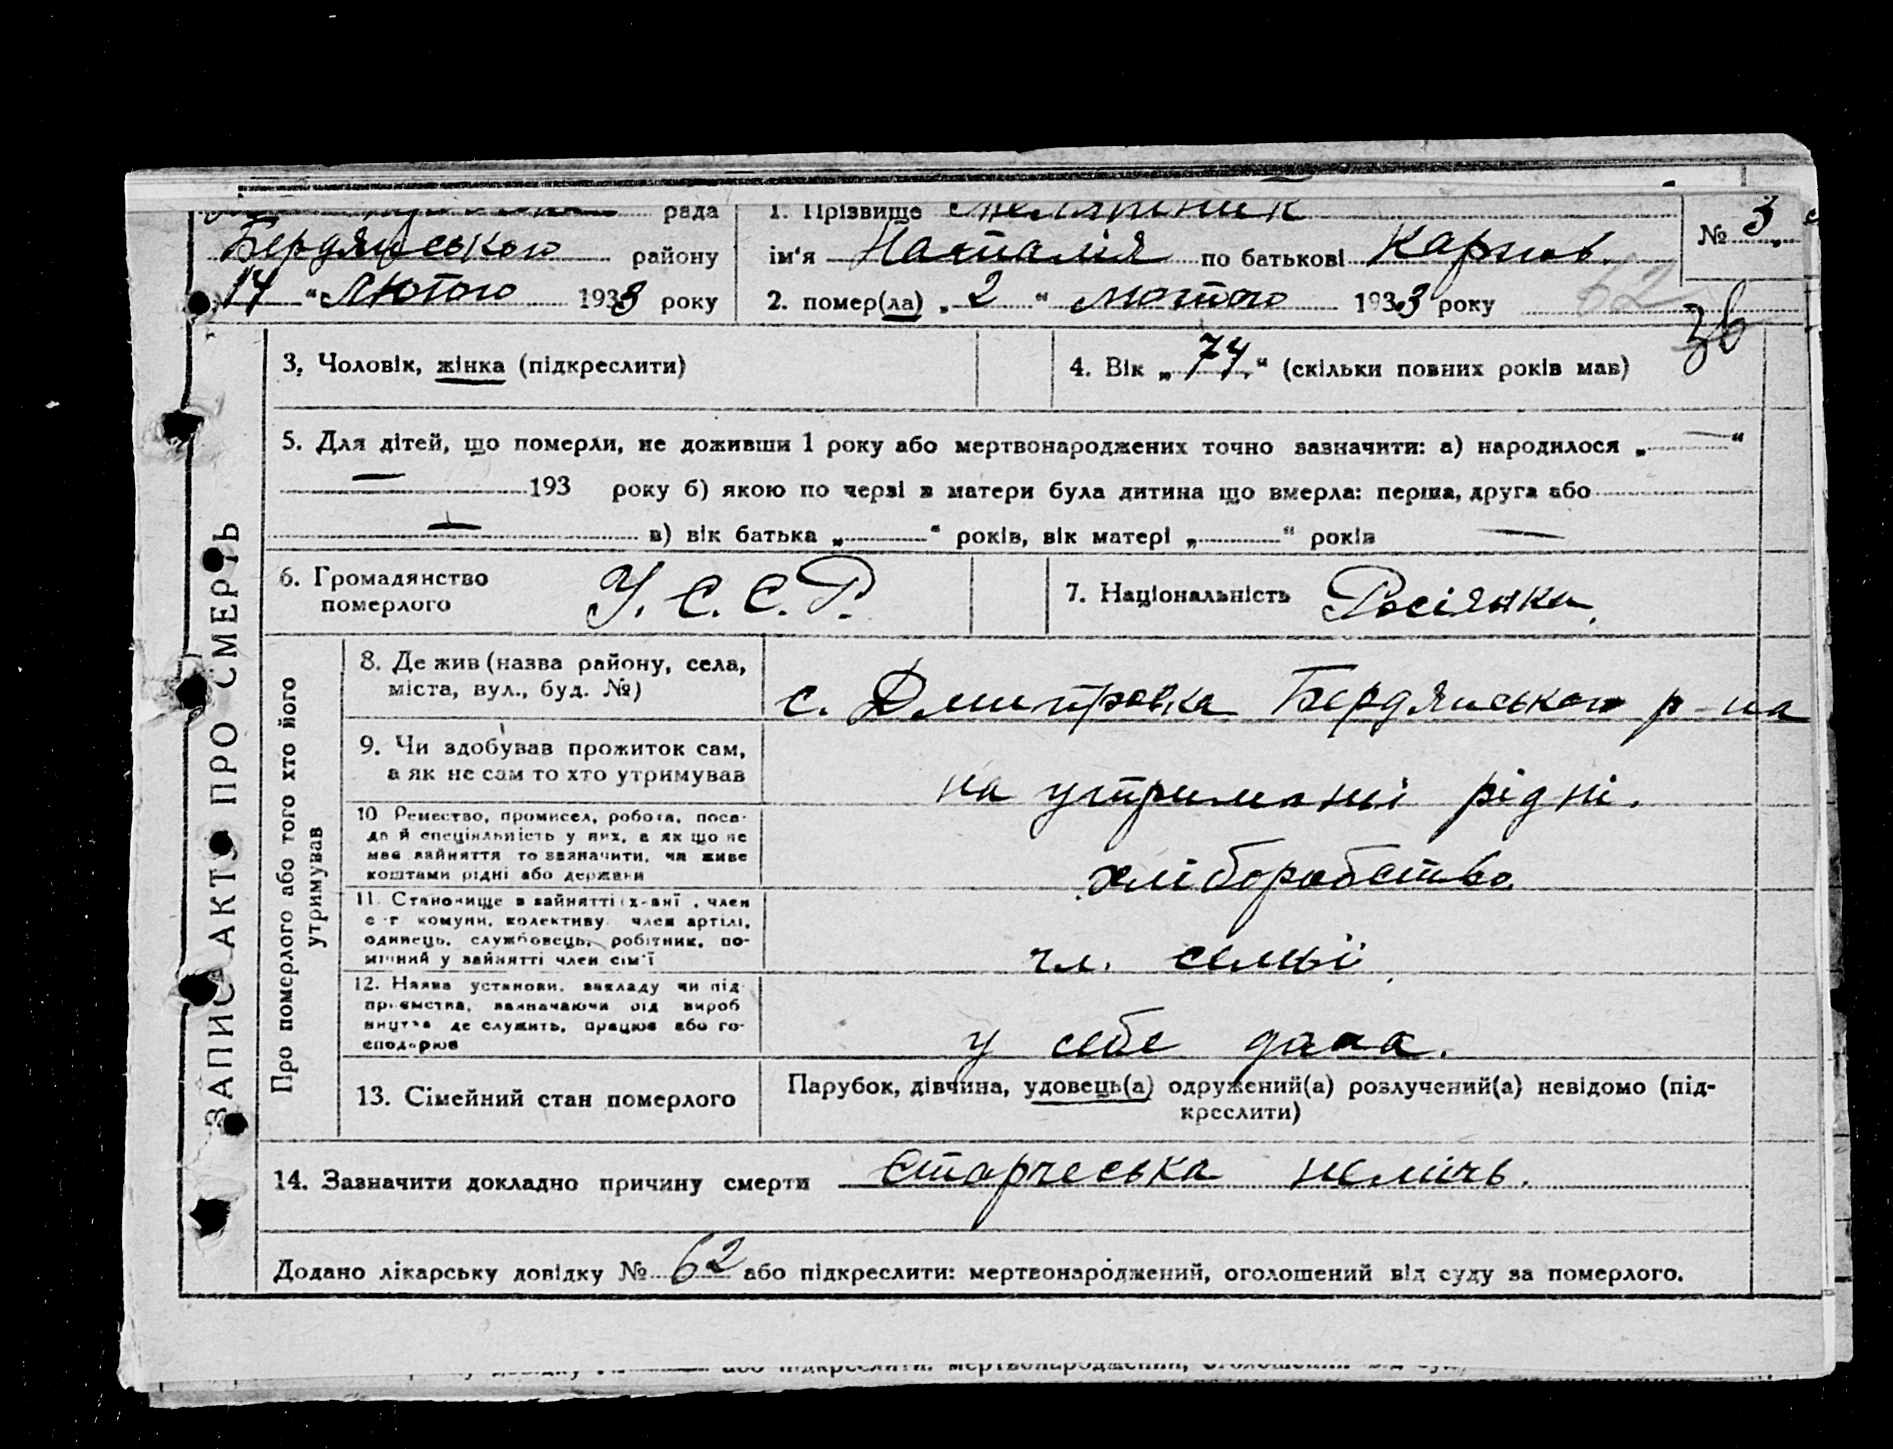 рада
Бердянського району
14 " Лютого 1933 року
1. Прізвище
ім'я Наталія по батькові Карпов.
2. помер(ла) „ 2 " лютого 1933 року
№ 3
62
36
3. Чоловік, жінка (підкреслити)
4. Вік „ 74 " (скільки повних років мав)
5. Для дітей, що померли, не доживши 1 року або мертвонароджених точно зазначити: а) народилося „ — "
— 193 року б) якою по черзі в матери була дитина що вмерла: перша, друга або
— в) вік батька „ " років, вік матері „ " років —
6. Громадянство
померлого
У.С.С.Р.
7. Національність Росіянка.
ЗАПИС АКТУ ПРО СМЕРТЬ
Про померлого або того хто його
утримував
8. Де жив (назва району, села,
міста, вул., буд. №)
с. Дмитровка Бердянського р-на
9. Чи здобував прожиток сам,
а як не сам то хто утримував
на утриманні рідні.
10 Ремество, промисел, робота, поса-
да й спеціяльність у них, а як що не
має зайняття то зазначити, чи живе
коштами рідні або держави
хліборобство
11. Становище в зайнятті , член
с-г комуни, колективу член артілі,
одинець, службовець, робітник, по-
мічний у зайнятті член сім'ї
чл. семьї
12. Назва установи, закладу чи під-
приємства, зазначаючи від вироб
ництва де служить, працює або го-
сподарює
у себе дома.
13. Сімейний стан померлого
Парубок, дівчина, удовець(а) одружений(а) розлучений(а) невідомо (під-
креслити)
14. Зазначити докладно причину смерти Старческа неміч.
Додано лікарську довідку № 62 або підкреслити: мертвонароджений, оголошений від суду за померлого.